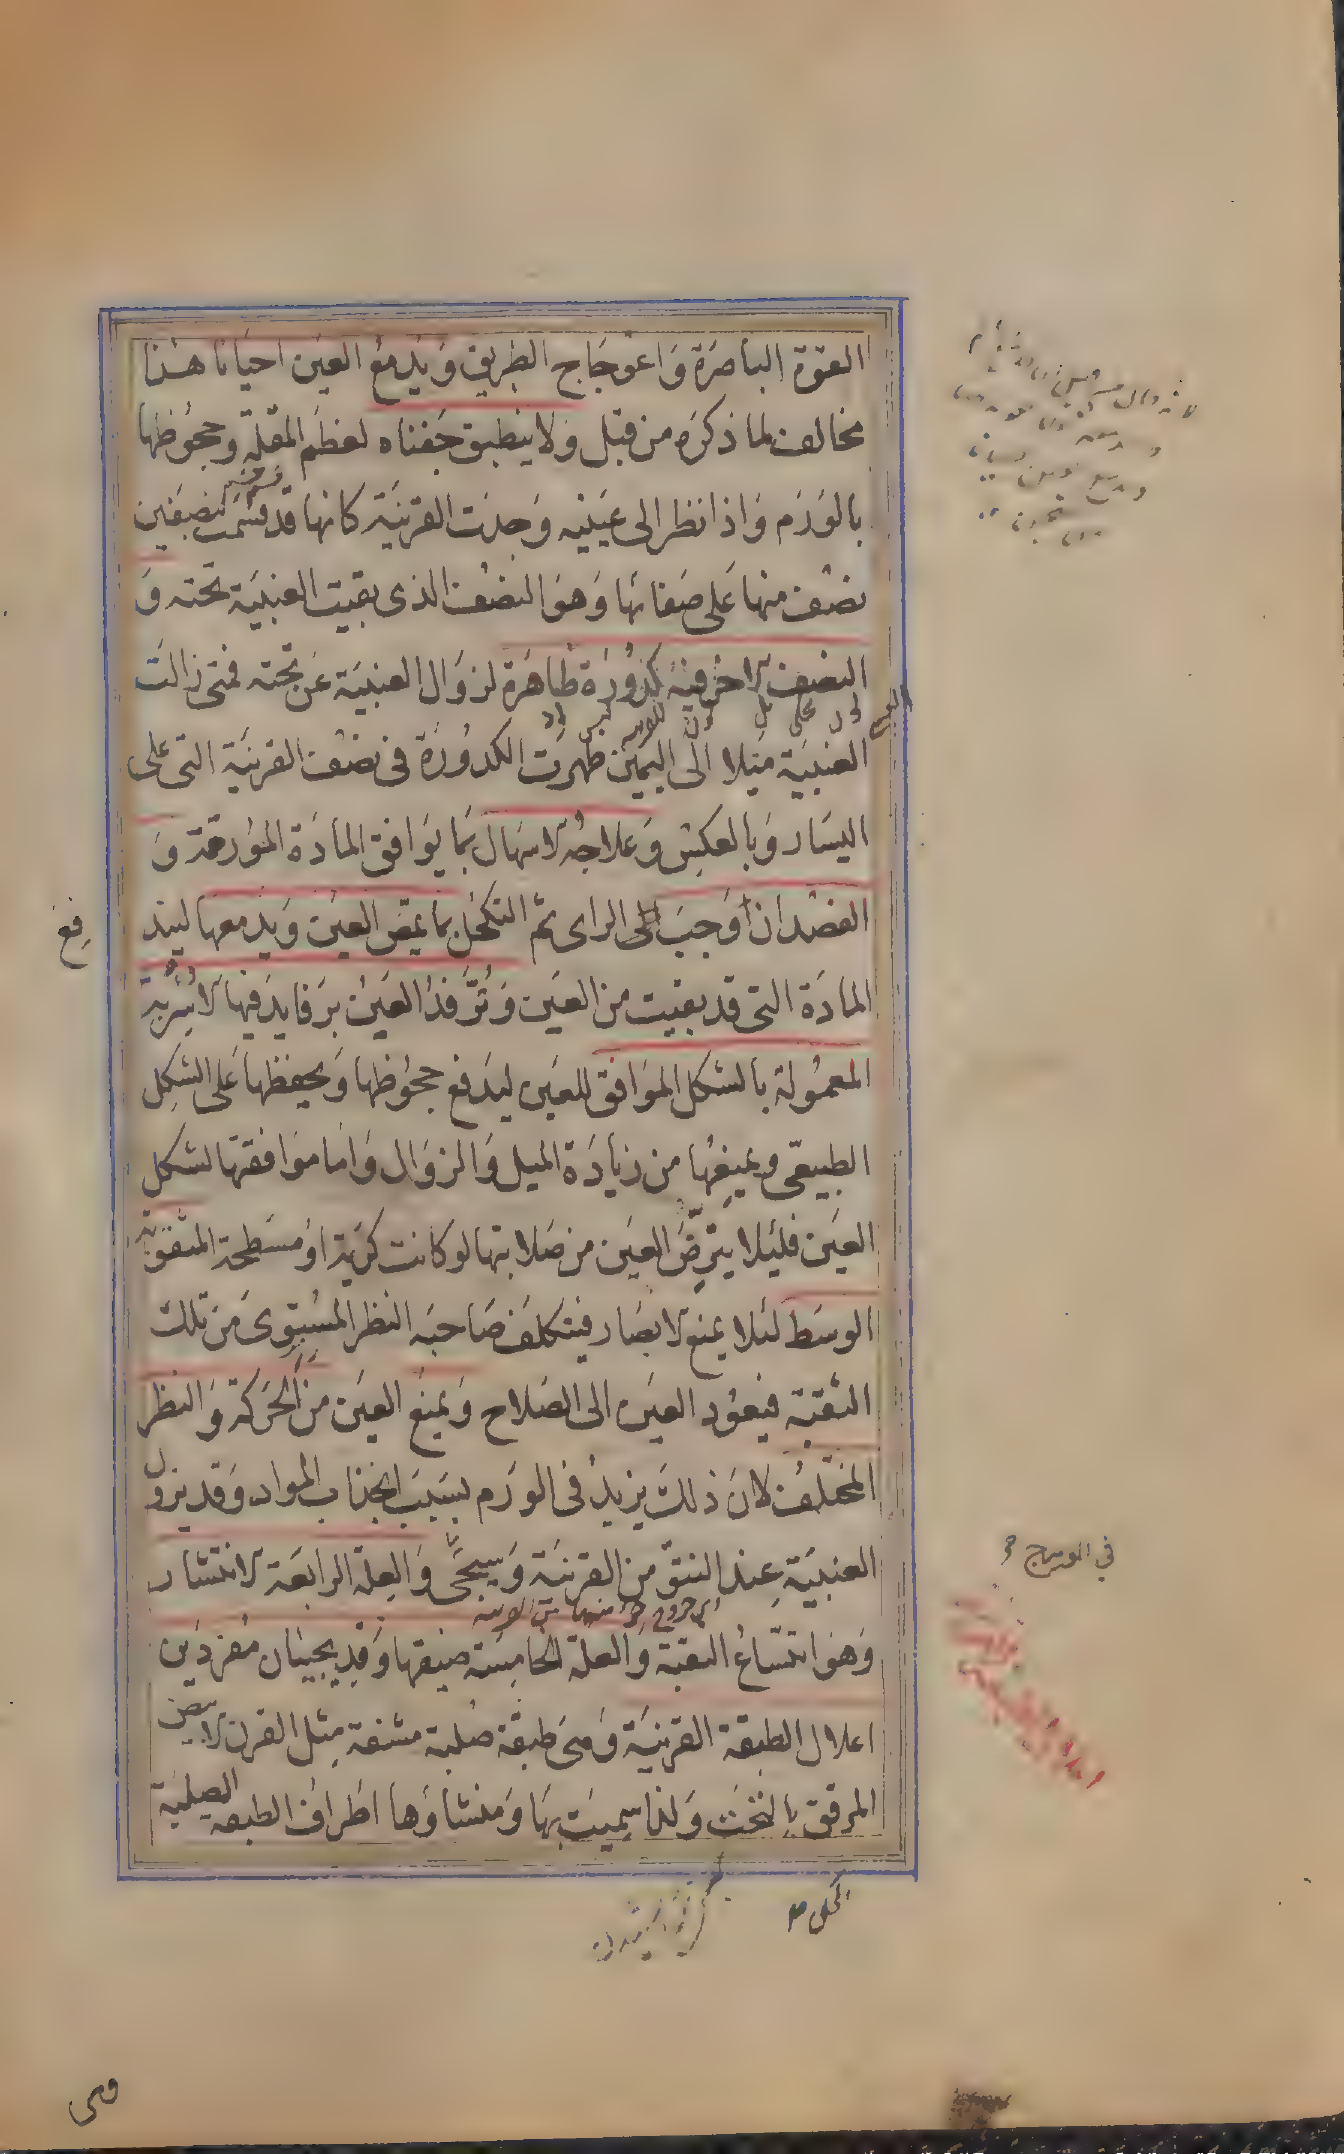 القوة الباصرة واعوجاج الطريق ويدمع العين احيانا هذا
مخالف لما ذكره من قبل ولا ينطبق جفناه لعظم المقلة وجحوظها
بالورم واذا نظر الى عينيه وجدت القرنية كانها قد قسمت بنصفين
نصف منها على صفائها وهو النصف الذى بقيت العنبية تحته و
النصف الاخر فيه كدورة ظاهرة لزوال العنبية عن تحته فمتى زالت
العنبية مثلا الى اليمين ظهرت الكدورة فى نصف القرنية التى على
اليسار وبالعكس وعلاجه الاسهال بما يوافق المادة المورمة و
الفصد ان اوجب الراى ثم التكحل بما يمض العين ويدمعها ليند
فع
المادة التى قد بقيت من العين وترفد العين برفايد فيها الاسربة
المعمولة بالشكل الموافق للعين ليدفع جحوظها ويحفظها على الشكل
الطبيعى ويمنعها من زيادة الميل والزوال واما موافقتها لشكل
العين فليلا يترضض العين من صلابتها لو كانت كرية او مسطحة المثقوبة
الوسط لئلا يمنع الابصار فيتكلف صاحبه النظر المستوى من تلك
الثقبة فيعود العين الى الصلاح ويمنع العين من الحركة والنظر
المختلف لان ذلك يزيد فى الورم بسبب انجذاب المواد وقد يزول
العنبية عند النتو من القرنية وسيجئ والعلة الرابعة الانتشار
وهو اتساع الثقبة والعلة الخامسة ضيقها وقد يجيئان مفردين
فى المزاج
اعلال الطبقة القرنية وهى طبقة صلبة مشفة مثل القرن الابيض
المرقق بالنحت ولذا سميت بها ومنشاؤها اطراف الطبقة الصلبية
وهى